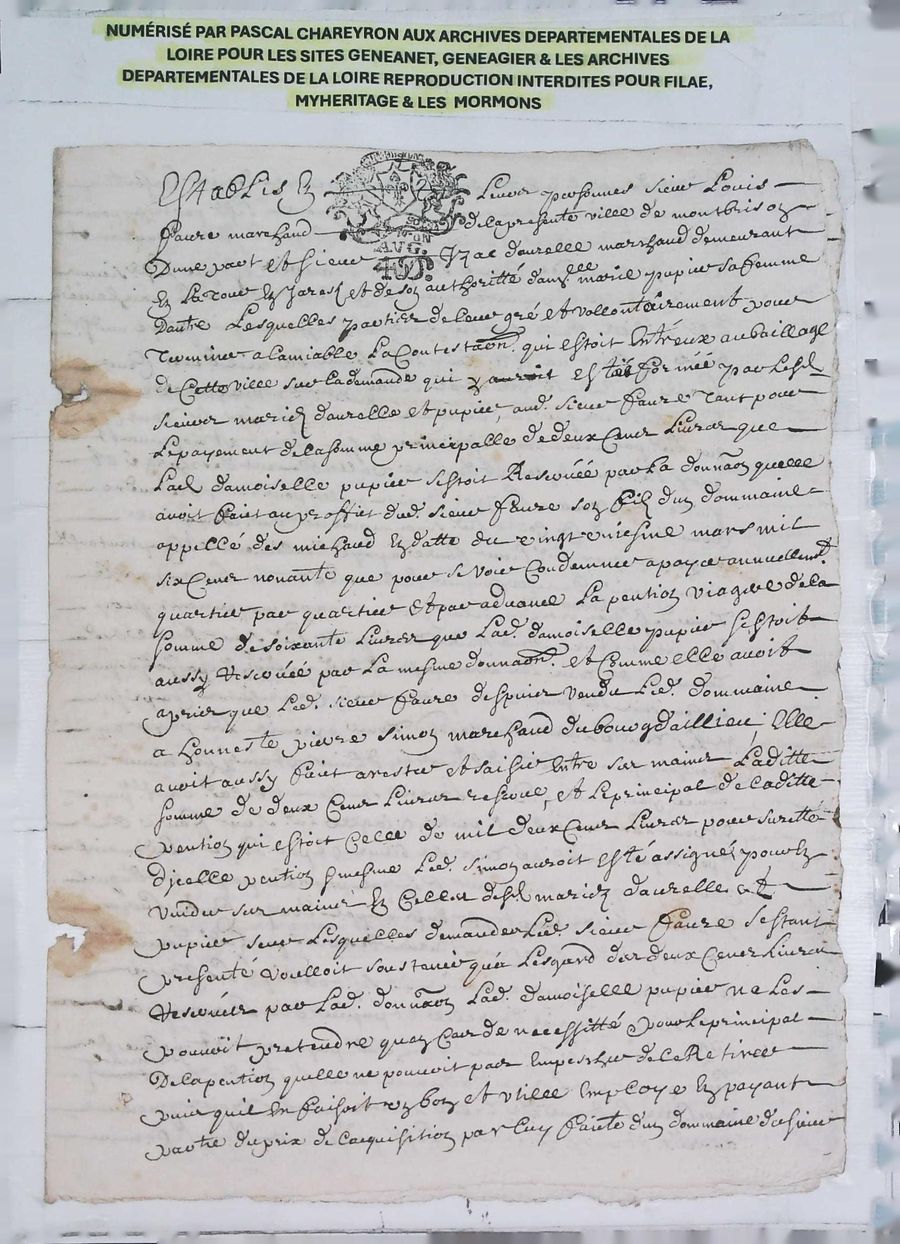 NUMÉRISÉ PAR PASCAL CHAREYRON AUX ARCHIVES DEPARTEMENTALES DE LA
LOIRE POUR LES SITES GENEANET, GENEAGIER & LES ARCHIVES
DEPARTEMENTALES DE LA LOIRE REPRODUCTION INTERDITES POUR FILAE,
MYHERITAGE & LES MORMONS
Establis En Leurs personnes sieur Louis
faure marchand de la presente ville de montbrison
AUG.
Dune part et sieur Izac daurelle marchand demeurant
En La tour En Jarest et de son authoritté damlle marie pupier sa femme
Dautre Lesquelles parties de leur gré et vollontairement pour
Terminer a lamiable La Contestaon. qui estoit Entreux au bailliage
de Cette ville sur la demande qui estée formée par Lesd.
sieurs mariez daurelle et pupier, aud. sieur faure Tant pour
Le payement de la somme principalle de deux Cens Livres que
Lad. damoiselle pupier sestoit Reservée par La donnaon quelle
avoit fait au proffit dud. sieur faure son fils dun dommaine
appellé des michaud En datte du vingt uniesme mars mil
six Cens nonante que pour se voir Condemner a payer annuellemt
quartier par quartier Et par advance La pention viagere de la
somme de soixante Livres que Lad. damoiselle pupier sestoit
aussy Reservée par La mesme donnaon. et Comme elle avoit
apris que Led. sieur faure despuis vendu Led. dommaine
a honneste pierre simon marchand du bourg daillieu, Elle
avoit aussy fait arester et saisir Entre ses mains Laditte
somme de deux Cens Livres reservée, et Le principal de laditte
pention qui estoit Celle de mil deux Cens Livres pour surette
dicelle pention mesme Led. simon auroit esté assigné pour En
vuider ses mains En Celles desd. mariez daurelle et
pupier sur Lesquelles demandes Led. sieur faure sestant
presenté voulloit soustenir qua Lesgard des deux Cens Livres
Reservées par Lad. donnaon Lad. damoiselle pupier ne Les
pouvoit pretendre quen Cas de necessitté pour Le principal
De la pention quelle ne pouvoit pas Empescher de le Retirer
puis quil En faisoit un bon et utille Employe En payant
partie du prix de lacquisition par Luy faite dun dommaine du sieur